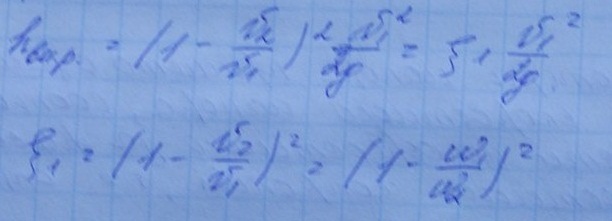 hвнр. = (1 - υ₂/υ₁)² υ₁²/2g = ξ₁ υ₁²/2g
ξ₁ = (1 - υ₂/υ₁)² = (1 - ω₁/ω₂)²